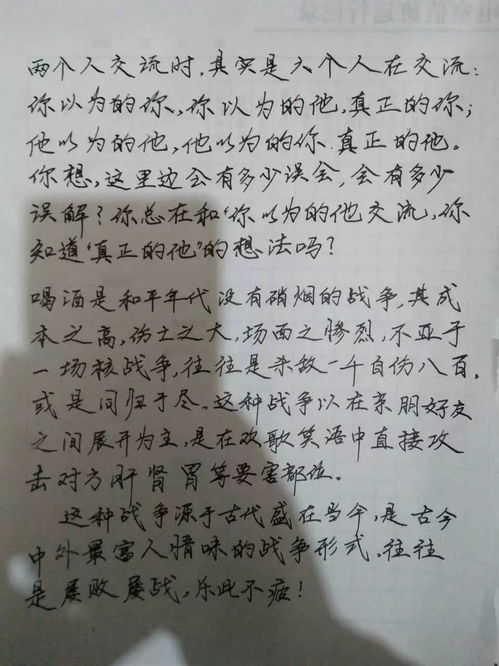 两个人交流时,其实是六个人在交流:
你以为的你,你以为的他,真正的你;
他以为的他,他以为的你.真正的他。
你想,这里边会有多少误会,会有多少
误解?你总在和“你以为的他交流,你
知道“真正的他”的想法吗?
喝酒是和平年代没有硝烟的战争,其成
本之高,伤士之大,场面之惨烈,不亚于
一场核战争,往往是杀敌一千自伤八百,
或是同归于尽。这种战争以在亲朋好友
之间展开为主,是在欢歌笑语中直接攻
击对方肝肾胃等要害部位。
这种战争源于古代盛在当今,是古今
中外最富人情味的战争形式,往往
是屡败屡战,乐此不疲!